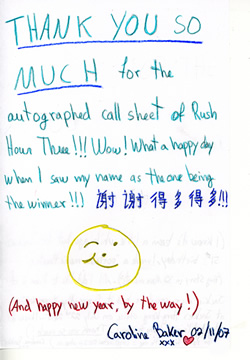 THANK YOU SO
MUCH for the
autographed call sheet of Rush
Hour Three!!! Wow! What a happy day
when I saw my name as the one being
the winner!!! 謝謝得多得多!!!
(And happy new year, by the way!)
Caroline Baker 02/11/07
xxx